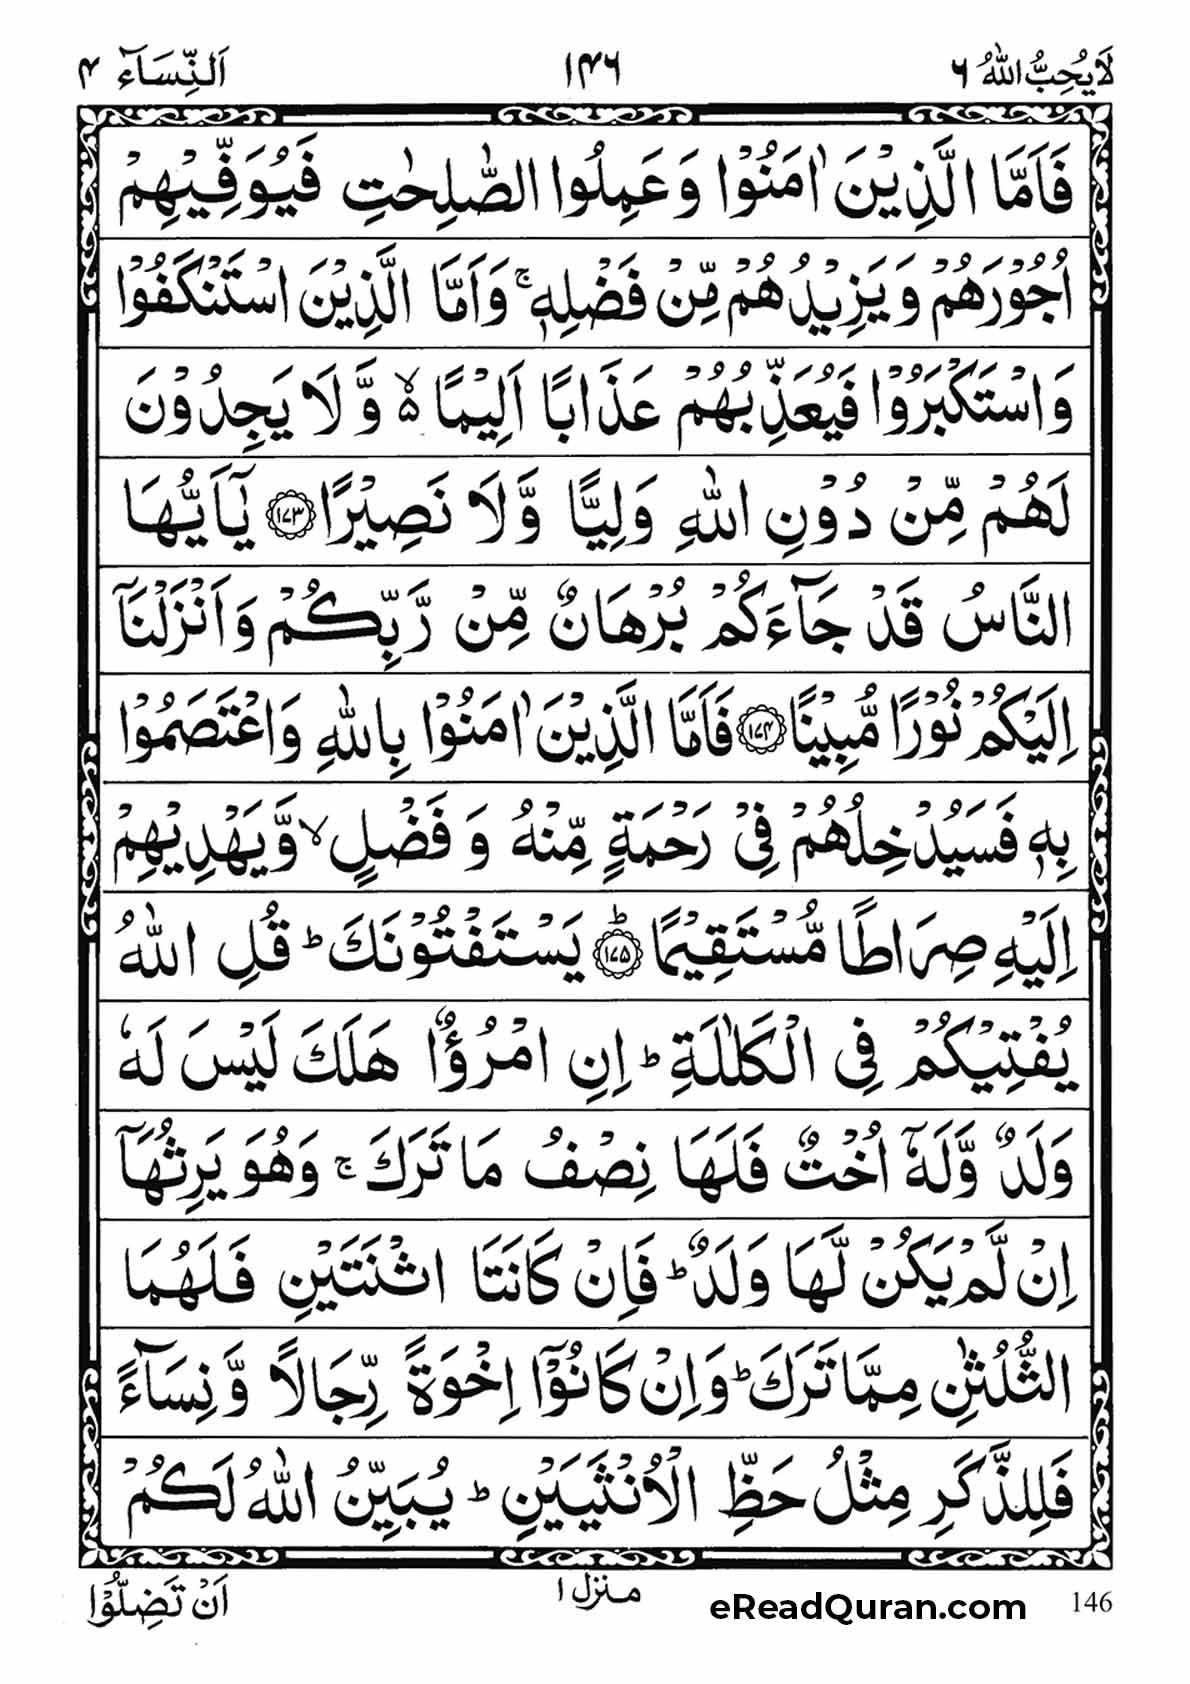 لَا يُحِبُّ اللهُ ٦ ١٤٦ اَلنِّسَآء ٤
فَاَمَّا الَّذِيْنَ اٰمَنُوْا وَعَمِلُوا الصّٰلِحٰتِ فَيُوَفِّيْهِمْ
اُجُوْرَهُمْ وَيَزِيْدُهُمْ مِّنْ فَضْلِهٖ ۚ وَاَمَّا الَّذِيْنَ اسْتَنْكَفُوْا
وَاسْتَكْبَرُوْا فَيُعَذِّبُهُمْ عَذَابًا اَلِيْمًا ۙ۵ وَّلَا يَجِدُوْنَ
لَهُمْ مِّنْ دُوْنِ اللهِ وَلِيًّا وَّلَا نَصِيْرًا ﴿١٧٣﴾ يٰٓاَيُّهَا
النَّاسُ قَدْ جَآءَكُمْ بُرْهَانٌ مِّنْ رَّبِّكُمْ وَاَنْزَلْنَآ
اِلَيْكُمْ نُوْرًا مُّبِيْنًا ﴿١٧٤﴾ فَاَمَّا الَّذِيْنَ اٰمَنُوْا بِاللهِ وَاعْتَصَمُوْا
بِهٖ فَسَيُدْخِلُهُمْ فِيْ رَحْمَةٍ مِّنْهُ وَفَضْلٍ ۙ وَّيَهْدِيْهِمْ
اِلَيْهِ صِرَاطًا مُّسْتَقِيْمًا ﴿١٧٥﴾ؕ يَسْتَفْتُوْنَكَ ؕ قُلِ اللهُ
يُفْتِيْكُمْ فِي الْكَلٰلَةِ ؕ اِنِ امْرُؤٌا هَلَكَ لَيْسَ لَهٗ
وَلَدٌ وَّلَهٗٓ اُخْتٌ فَلَهَا نِصْفُ مَا تَرَكَ ۚ وَهُوَ يَرِثُهَآ
اِنْ لَّمْ يَكُنْ لَّهَا وَلَدٌ ؕ فَاِنْ كَانَتَا اثْنَتَيْنِ فَلَهُمَا
الثُّلُثٰنِ مِمَّا تَرَكَ ؕ وَاِنْ كَانُوْٓا اِخْوَةً رِّجَالًا وَّنِسَآءً
فَلِلذَّكَرِ مِثْلُ حَظِّ الْاُنْثَيَيْنِ ؕ يُبَيِّنُ اللهُ لَكُمْ
اَنْ تَضِلُّوْا منزل ١ eReadQuran.com 146